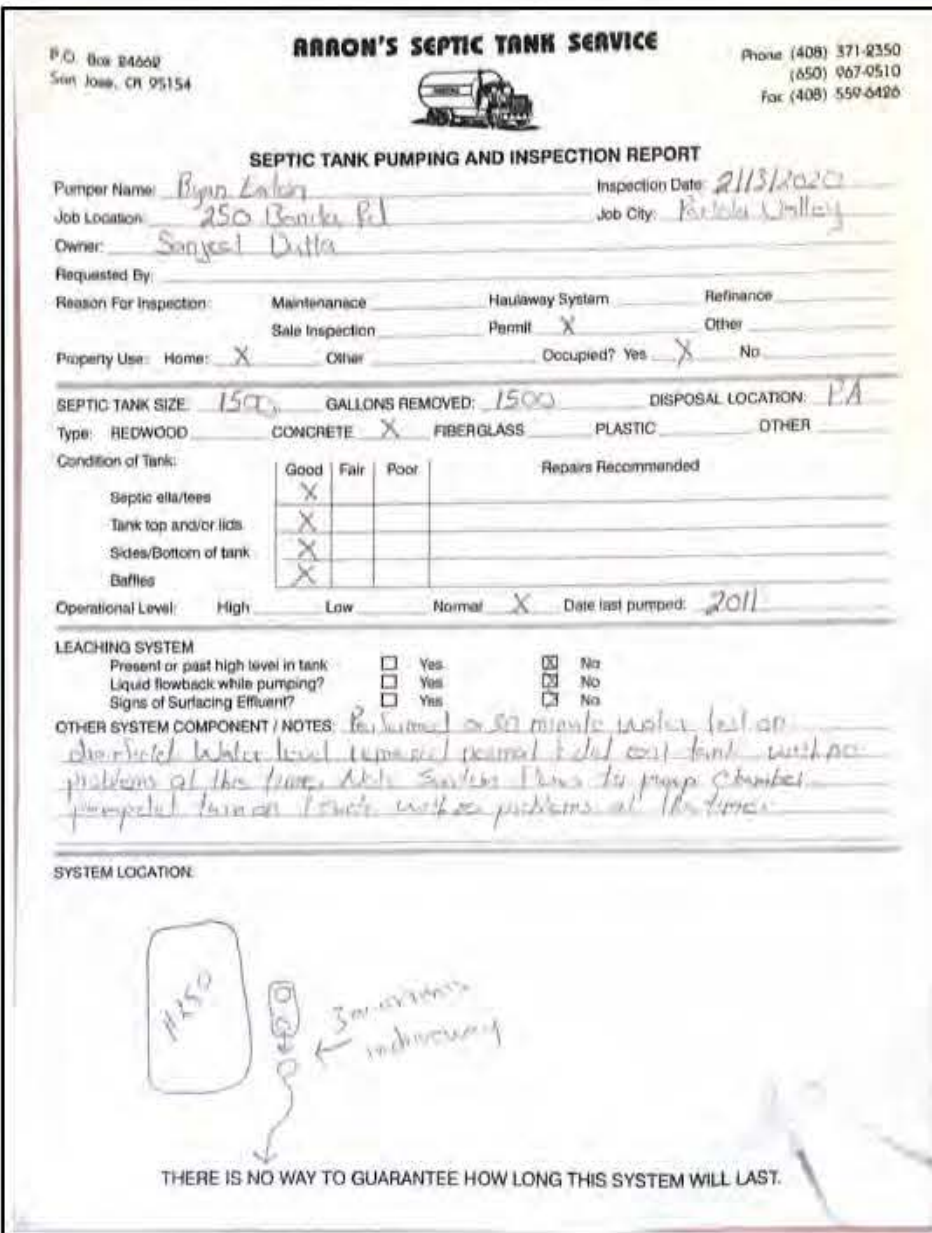 P.O. Box 24662
San Jose, CA 95154
AARON'S SEPTIC TANK SERVICE
Phone (408) 371-2350
(650) 967-0510
Fax (408) 559-6426
SEPTIC TANK PUMPING AND INSPECTION REPORT
Pumper Name: Inspection Date: 2/13/2020
Job Location: 250 Job City: Valley
Owner: Sanjeet Dutta
Requested By:
Reason For Inspection: Maintenanace Haulaway System Refinance
Sale Inspection Permit X Other
Property Use: Home: X Other Occupied? Yes X No
SEPTIC TANK SIZE: 1500 GALLONS REMOVED: 1500 DISPOSAL LOCATION: PA
Type: REDWOOD CONCRETE X FIBERGLASS PLASTIC OTHER
Condition of Tank: Good Fair Poor Repairs Recommended
Septic ells/tees X
Tank top and/or lids X
Sides/Bottom of tank X
Baffles X
Operational Level: High Low Normal X Date last pumped: 2011
LEACHING SYSTEM
Present or past high level in tank Yes X No
Liquid flowback while pumping? Yes X No
Signs of Surfacing Effluent? Yes X No
OTHER SYSTEM COMPONENT / NOTES: Performed a minute water test on
drainfield Water level normal tank with no
problems at this time. Note System Flows to pump Chamber
turn on with no problems at this time.
SYSTEM LOCATION:
#250
3
in driveway
THERE IS NO WAY TO GUARANTEE HOW LONG THIS SYSTEM WILL LAST.